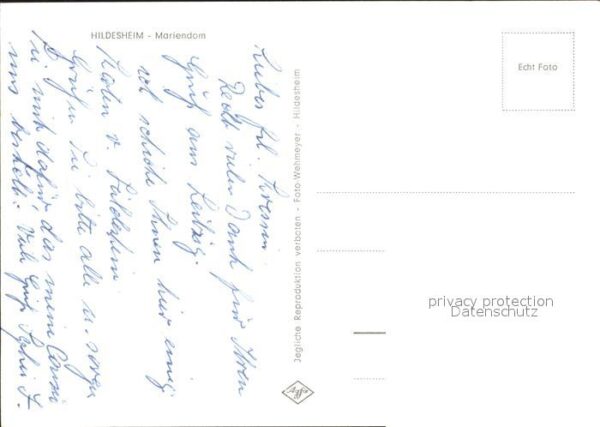 HILDESHEIM - Mariendom
Echt Foto
Liebes Frl.
Recht vielen Dank für Ihren
Gruß aus Leipzig.
ich schicke Ihnen hier einig
Karten v. Hildesheim
Grüßen Sie bitte alle u. sagen
Sie mich dafür das mein
uns Viele Grüße
Jegliche Reproduktion verboten - Foto-Wehmeyer - Hildesheim
Agfa
privacy protection
Datenschutz